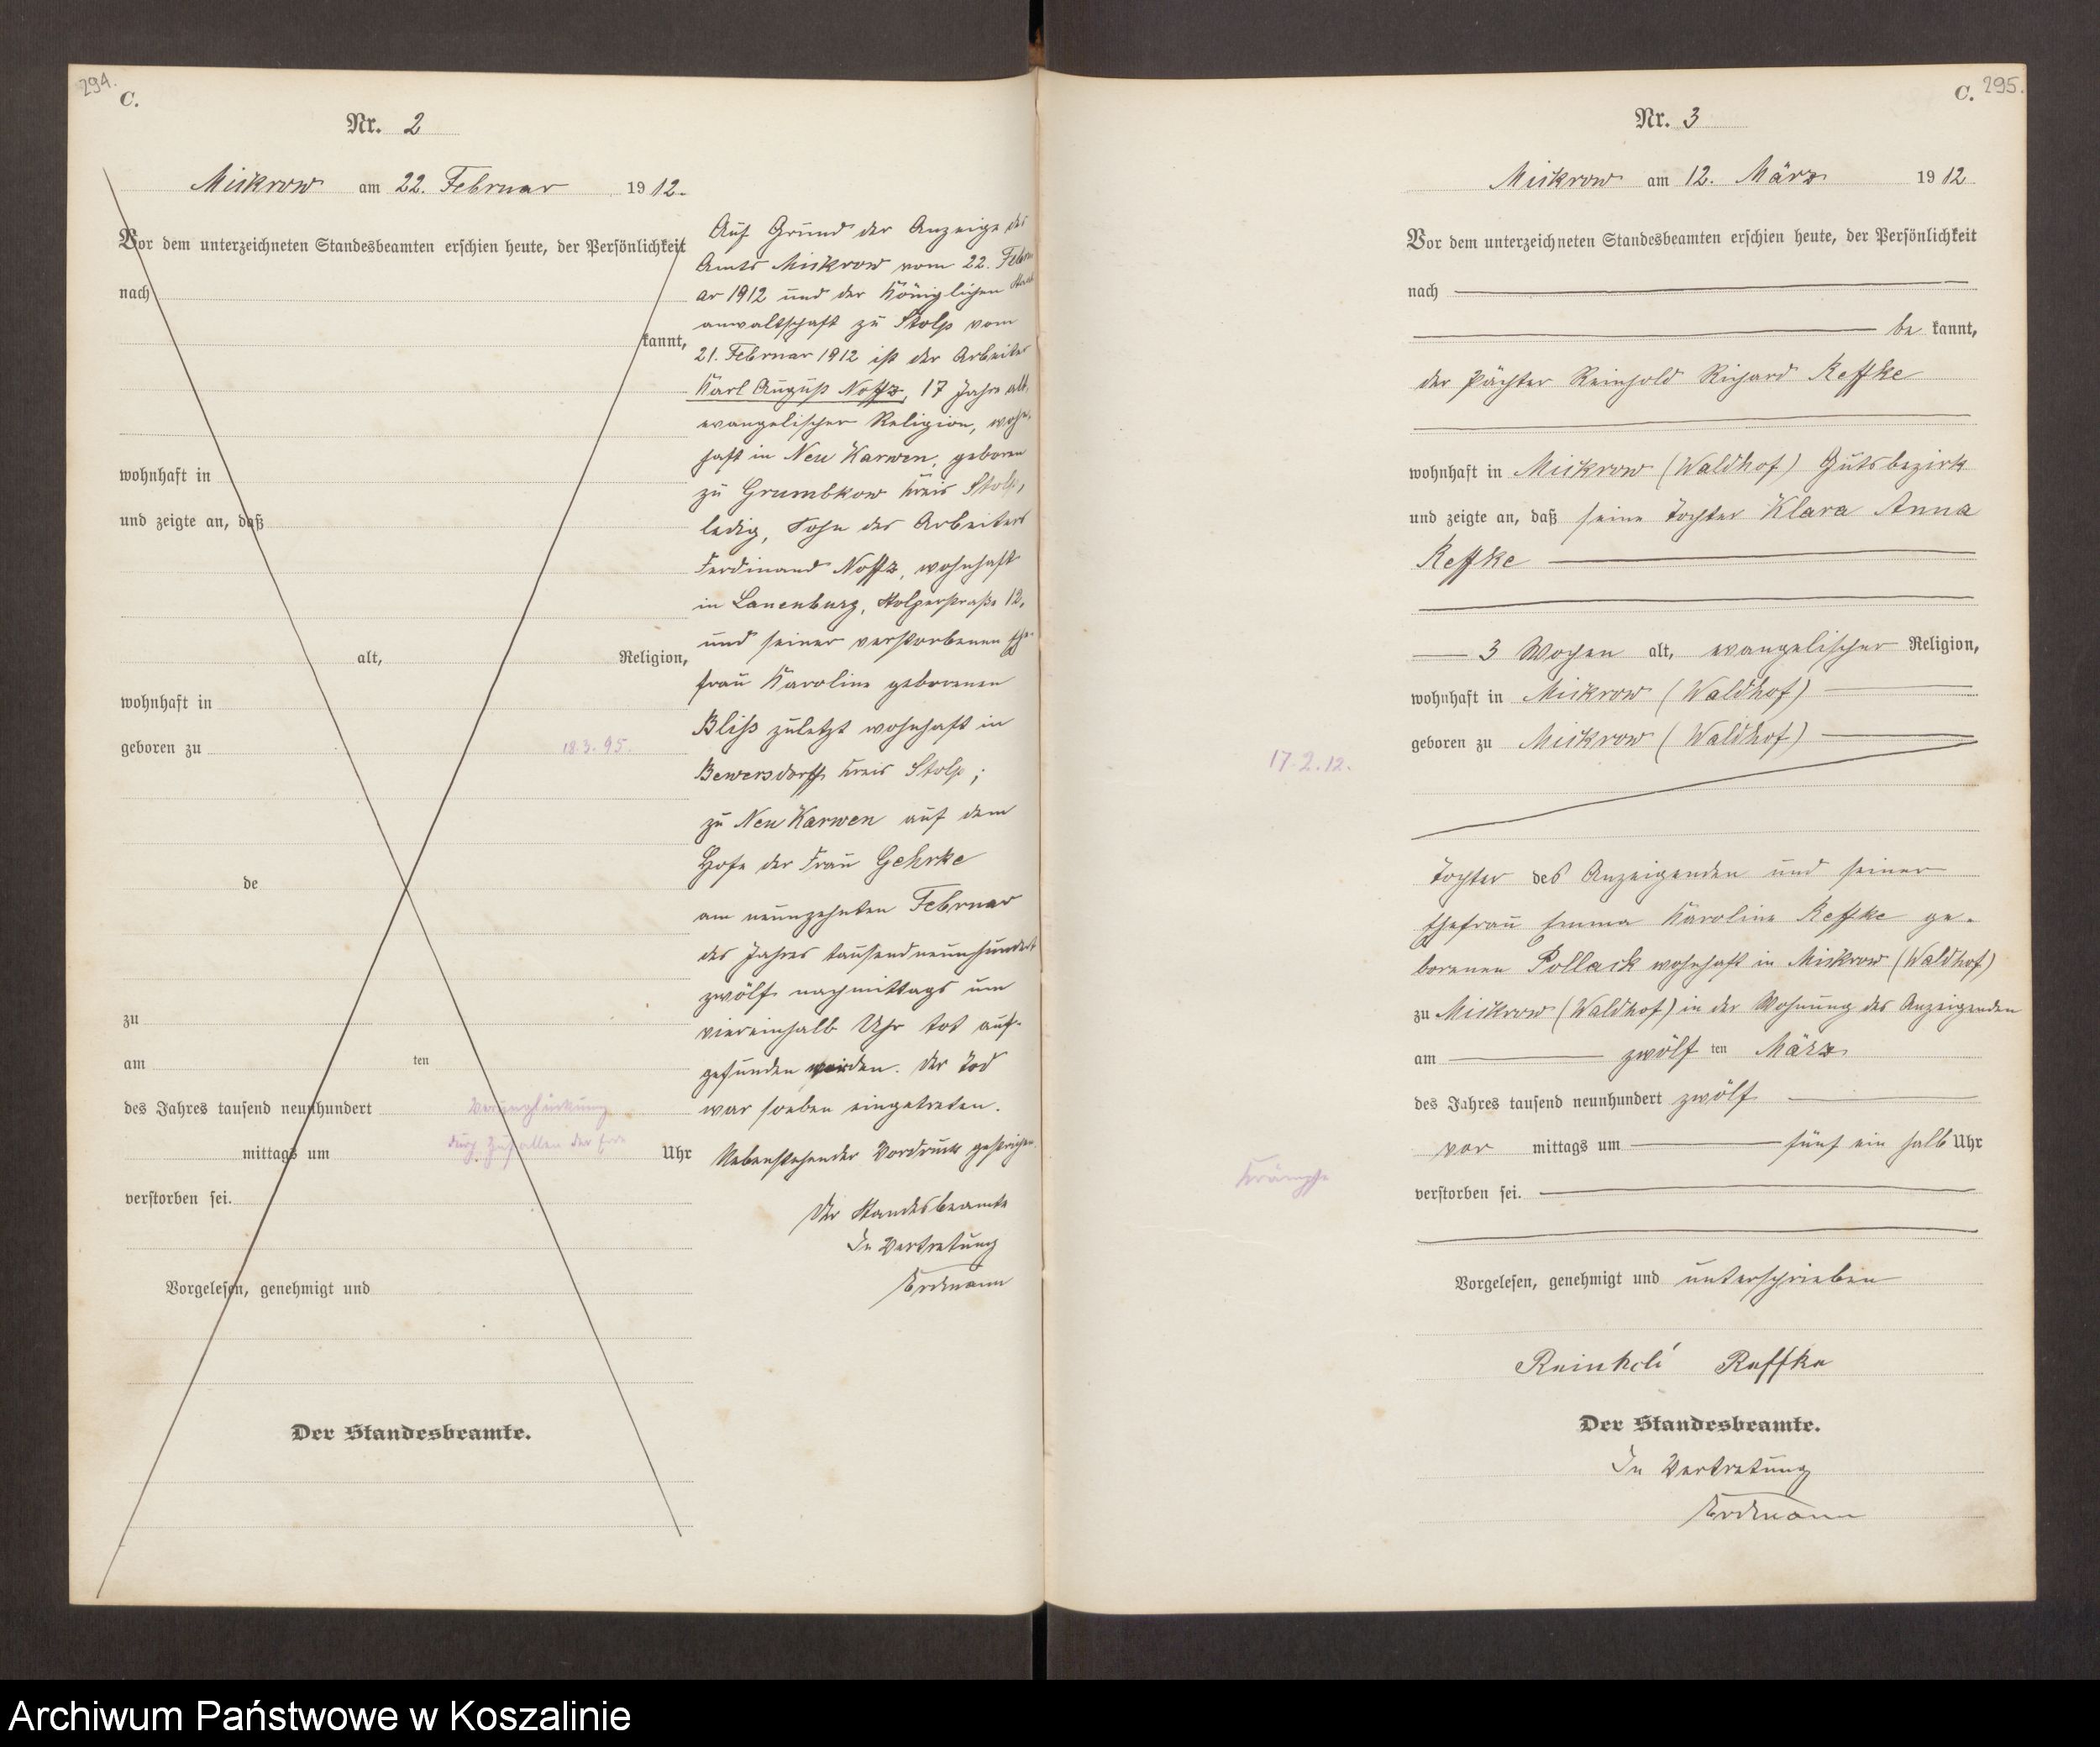 294.
C.
Nr. 2
Mickrow am 22. Februar 1912.
Vor dem unterzeichneten Standesbeamten erschien heute, der Persönlichkeit
nach
kannt,
wohnhaft in
und zeigte an, daß
alt, Religion,
wohnhaft in
geboren zu 18.3.95.
de
zu
am ten
des Jahres tausend neunhundert Verunglückung
durch Zufallen der
mittags um Uhr
verstorben sei.
Vorgelesen, genehmigt und
Der Standesbeamte.
Auf Grund der Anzeige des
Amts Mickrow vom 22. Febru
ar 1912 und der Königlichen Staats
anwaltschaft zu Stolp vom
21. Februar 1912 ist der Arbeiter
Karl August Noffz, 17 Jahre alt,
evangelischer Religion, wohn-
haft in Neu Karwen, geboren
zu Grumbkow Kreis Stolp,
ledig, Sohn des Arbeiters
Ferdinand Noffz, wohnhaft
in Lauenburg, Stolperstraße 12,
und seiner verstorbenen Ehe-
frau Karoline geborenen
Bliß zuletzt wohnhaft in
Bewersdorff Kreis Stolp;
zu Neu Karwen auf dem
Hofe der Frau Gehrke
am neunzehnten Februar
des Jahres tausendneunhundert
zwölf nachmittags um
viereinhalb Uhr tot auf-
gefunden worden. Der Tod
war soeben eingetreten.
Nebenstehender Vordruck gestrichen.
Der Standesbeamte
In Vertretung
Erdmann
C. 295.
Nr. 3
Mickrow am 12. März 1912
Vor dem unterzeichneten Standesbeamten erschien heute, der Persönlichkeit
nach
be kannt,
der Pächter Reinhold Richard Reffke
wohnhaft in Mickrow (Waldhof) Gutsbezirk
und zeigte an, daß seine Tochter Klara Anna
Reffke
3 Wochen alt, evangelischer Religion,
wohnhaft in Mickrow (Waldhof)
geboren zu Mickrow (Waldhof)
17.2.12.
Tochter des Anzeigenden und seiner
Ehefrau Emma Karoline Reffke ge-
borenen Pollack wohnhaft in Mickrow (Waldhof)
zu Mickrow (Waldhof) in der Wohnung des Anzeigenden
am zwölf ten März
des Jahres tausend neunhundert zwölf
vor mittags um fünf ein halb Uhr
Krämpfe
verstorben sei.
Vorgelesen, genehmigt und unterschrieben
Reinhold Reffke
Der Standesbeamte.
In Vertretung
Erdmann
Archiwum Państwowe w Koszalinie